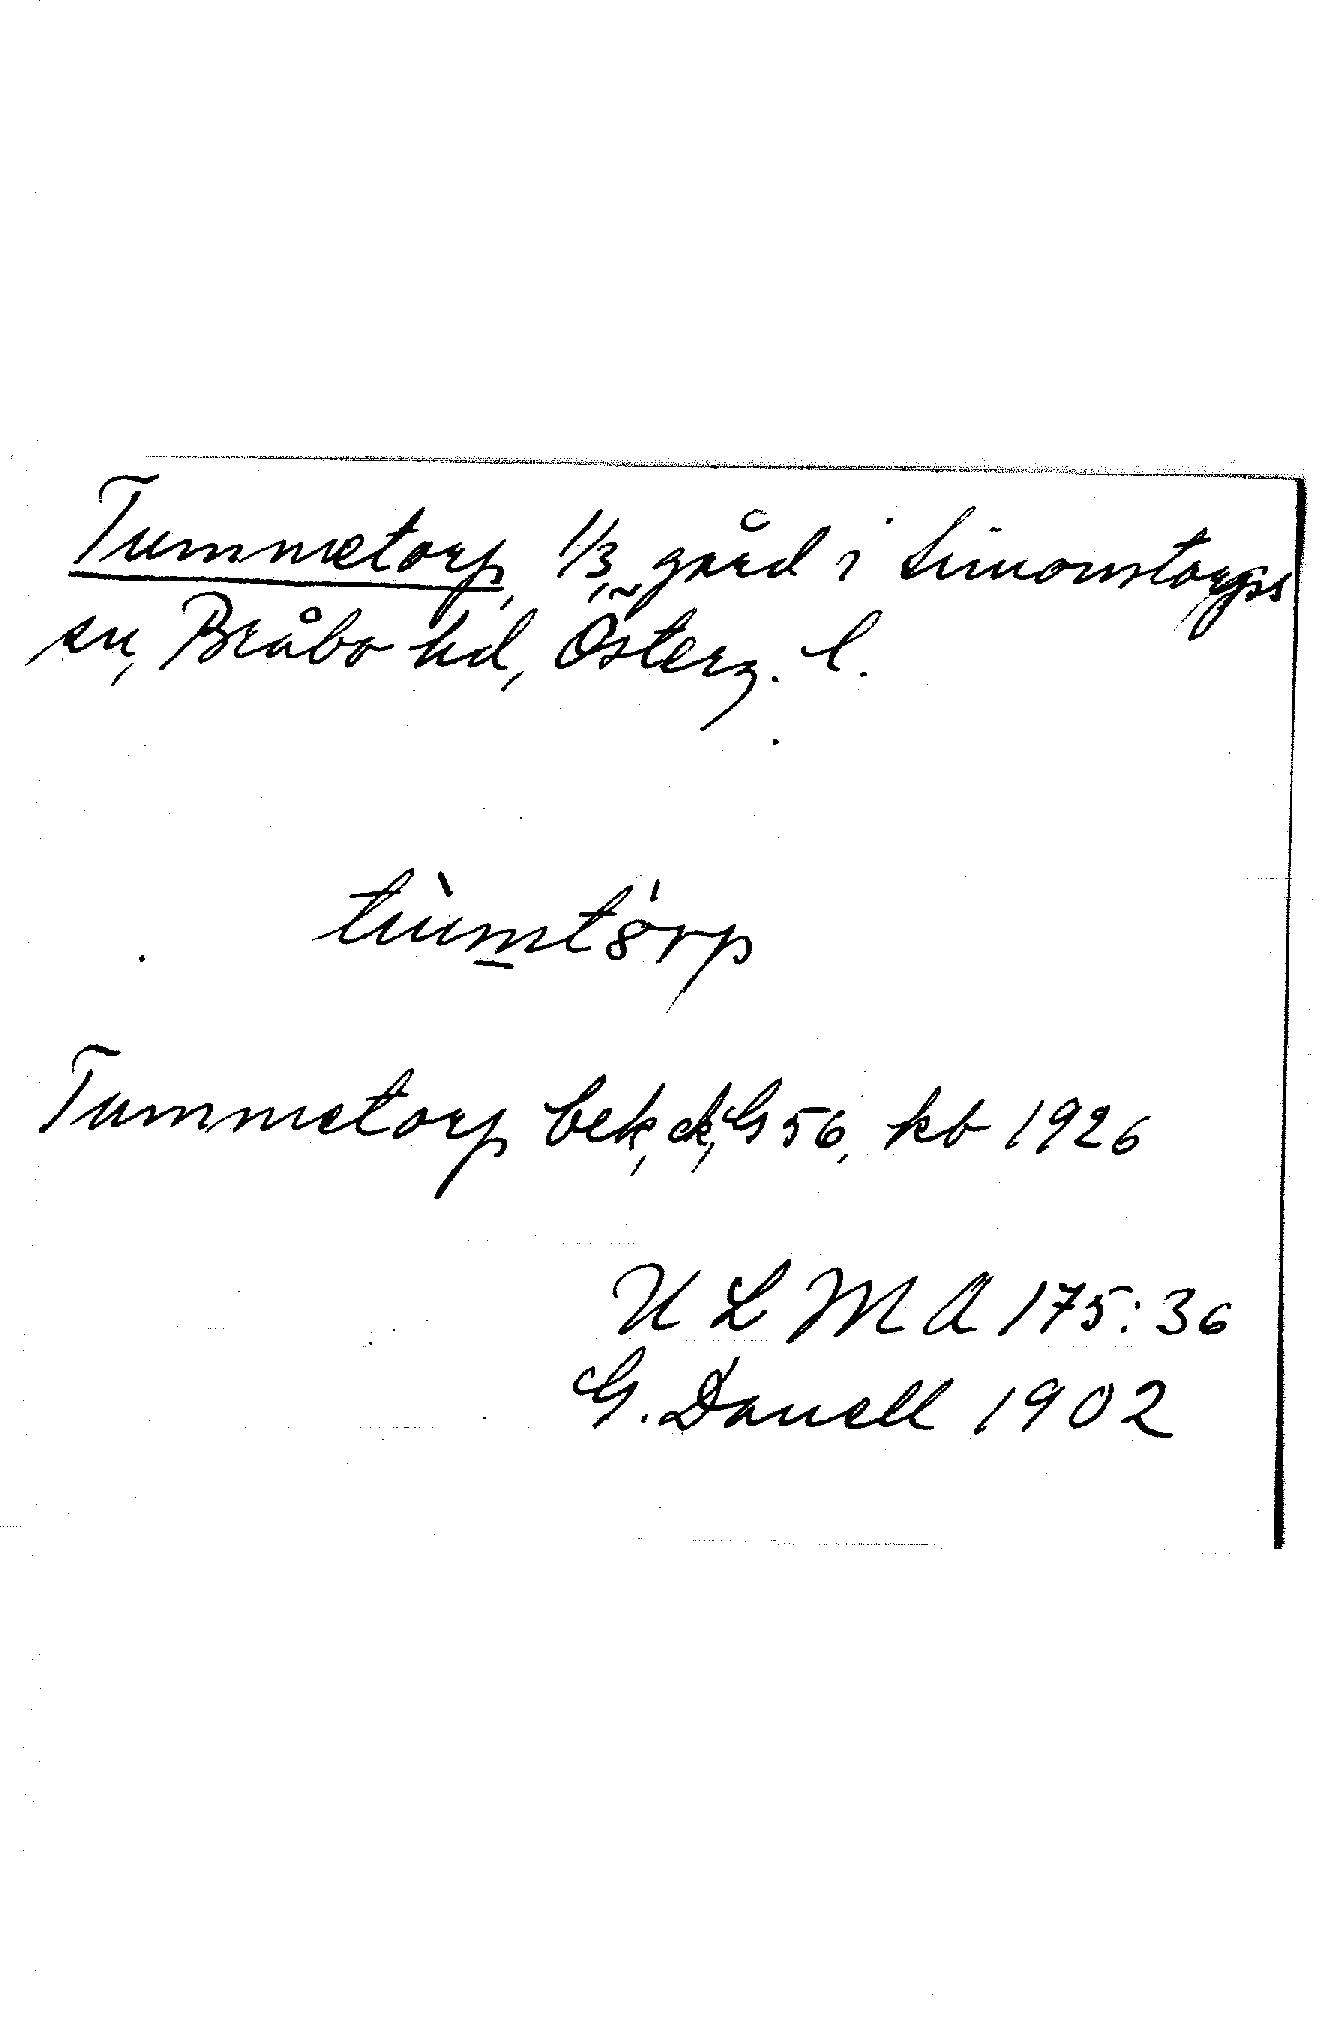 Tummetorp, 1/3 gård i Simonstorps
sn, Bråbo hd, Österg. l.
tùmtórp
Tummetorp bek, ek, GS 56, kb 1926
ULMA 175:36
G. Danell 1902